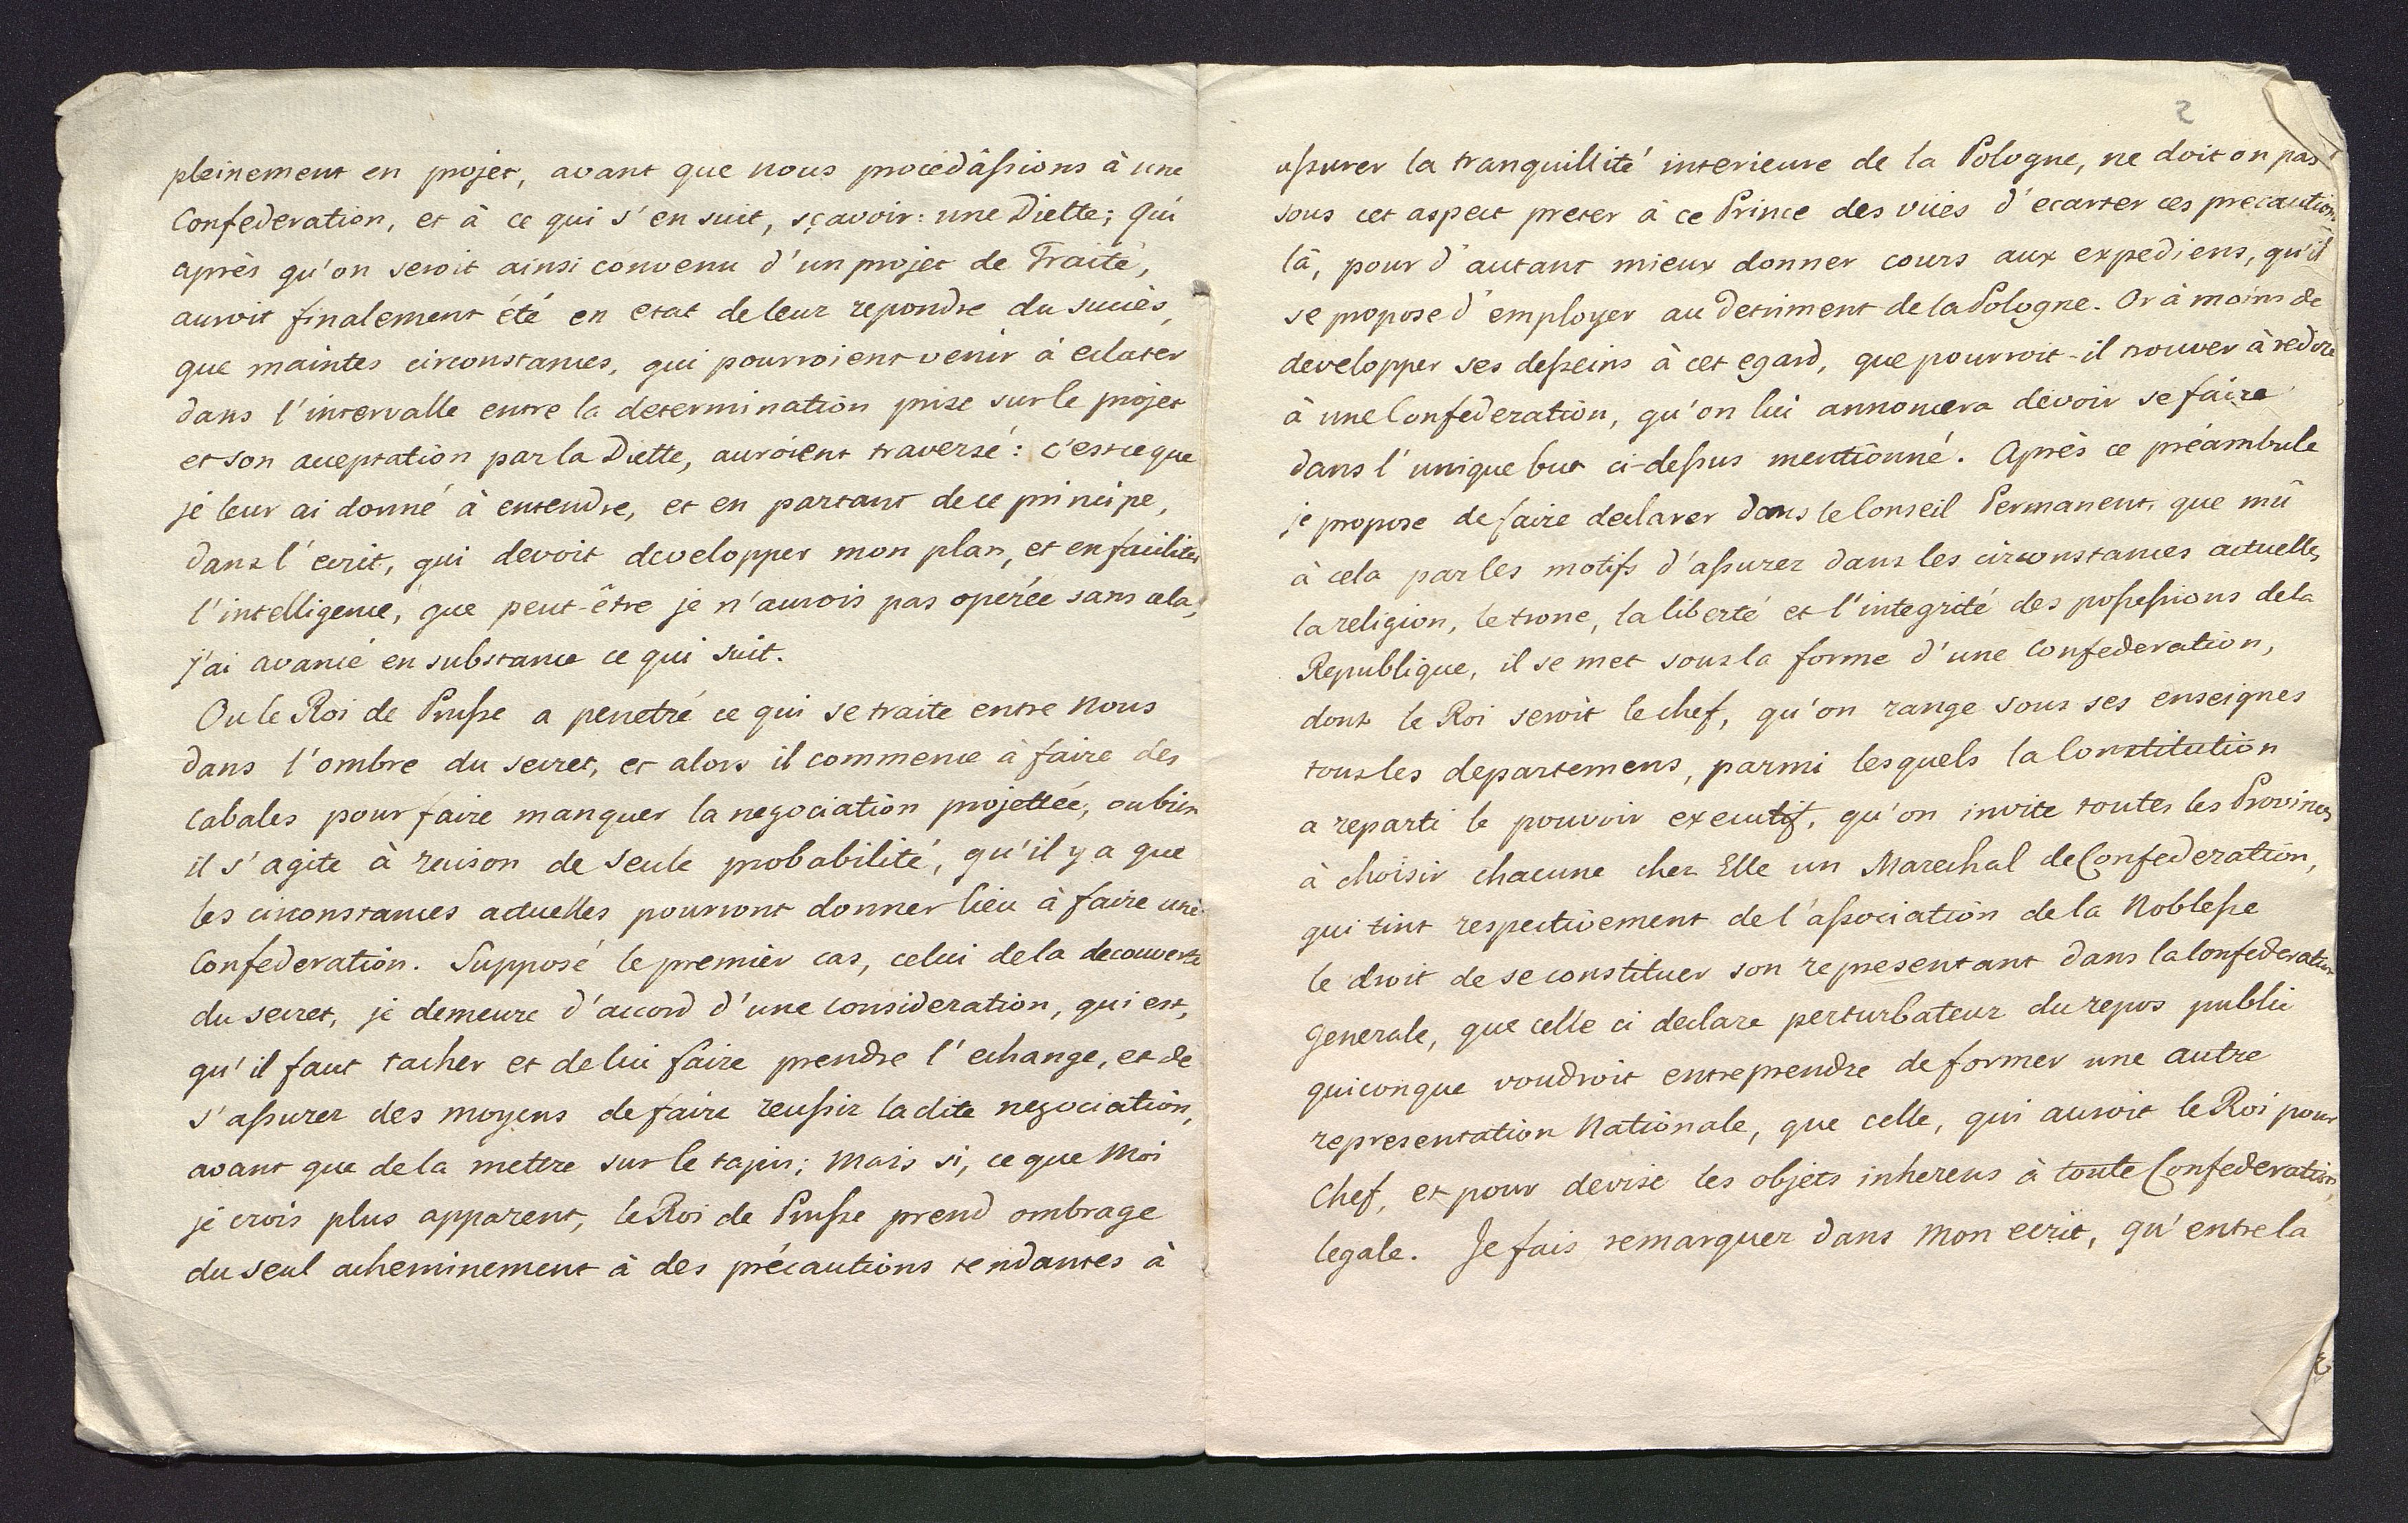 pleinement en projet, avant que nous procedâssions à une
Confederation, et à ce qui s'en suit, sçavoir: une Diette; qui
après qu'on seroit ainsi convenu d'un projet de Traité,
auroit finalement été en etat de leur repondre du succès,
que maintes circonstances, qui pourroient venir à eclater
dans l'intervalle entre la determination prise sur le projet
et son acceptation par la Diette, auroient traversé: c'est ce que
je leur ai donné à entendre, et en partant de ce principe,
dans l'ecrit, qui devoit developper mon plan, et en faciliter
l'intelligence, que peut-être je n'aurois pas opérée sans cela,
j'ai avancé en substance ce qui suit.
Ou le Roi de Prusse a penetré ce qui se traite entre nous
dans l'ombre du secret, et alors il commence à faire des
cabales pour faire manquer la negociation projettée; ou bien
il s'agite à raison de seule probabilité, qu'il y a que
les circonstances actuelles pourront donner lieu à faire une
Confederation. Supposé le premier cas, celui de la decouverte
du secret, je demeure d'accord d'une consideration, qui est,
qu'il faut tacher et de lui faire prendre l'echange, et de
s'assurer des moyens de faire reussir la dite negociation,
avant que de la mettre sur le tapis; Mais si, ce que Moi
je crois plus apparent, le Roi de Prusse prend ombrage
du seul acheminement à des précautions tendantes à
2
assurer la tranquillité interieure de la Pologne, ne doit on pas
sous cet aspect preter à ce Prince des vües d'ecarter ces precautions
là, pour d'autant mieux donner cours aux expediens, qu'il
se propose d'employer au detriment de la Pologne. Or à moins de
developper ses desseins à cet egard, que pourroit-il trouver à redire
à une Confederation, qu'on lui annoncera devoir se faire
dans l'unique but ci-dessus mentionné. Après ce préambule
je propose de faire declarer dans le Conseil Permanent, que mû
à cela par les motifs d'assurer dans les circonstances actuelles
la religion, le trone, la liberté et l'integrité des possessions de la
Republique, il se met sous la forme d'une Confederation,
dont le Roi seroit le chef, qu'on range sous ses enseignes
tous les departemens, parmi lesquels la Constitution
a reparti le pouvoir executif, qu'on invite toutes les Provinces
à choisir chacune chez Elle un Marechal de Confederation,
qui tint respectivement de l'association de la Noblesse
le droit de se constituer son representant dans la Confederation
generale, que celle ci declare perturbateur du repos public
quiconque voudroit entreprendre de former une autre
representation Nationale, que celle, qui auroit le Roi pour
Chef, et pour devise les objets inherens à toute Confederation
legale. Je fais remarquer dans Mon ecrit, qu'entre la